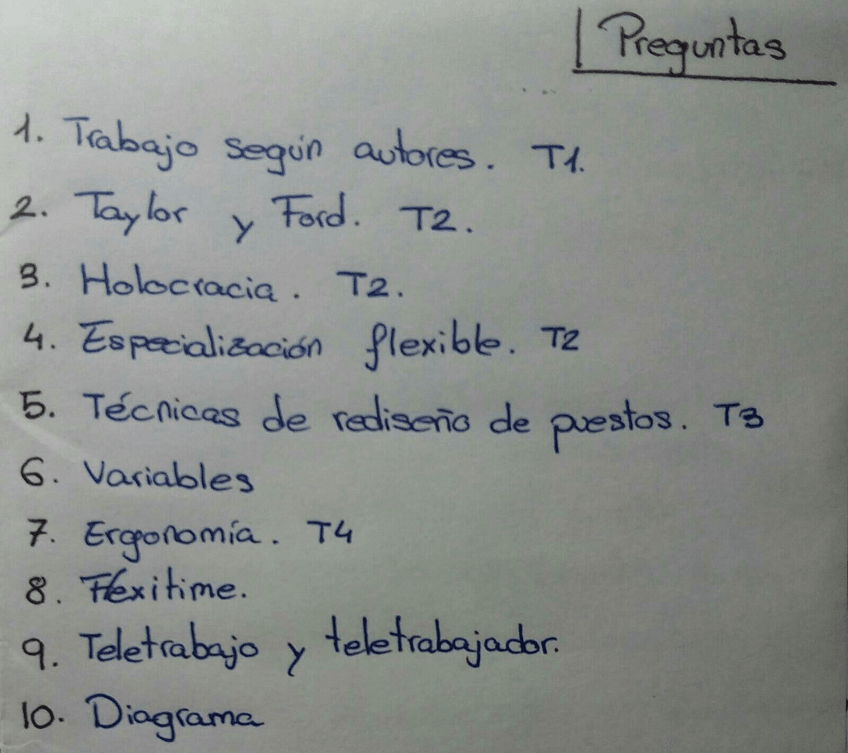 Preguntas
1. Trabajo según autores. T1.
2. Taylor y Ford. T2.
3. Holocracia. T2.
4. Especialización flexible. T2
5. Técnicas de rediseño de puestos. T3
6. Variables
7. Ergonomía. T4
8. Flexitime.
9. Teletrabajo y teletrabajador.
10. Diagrama